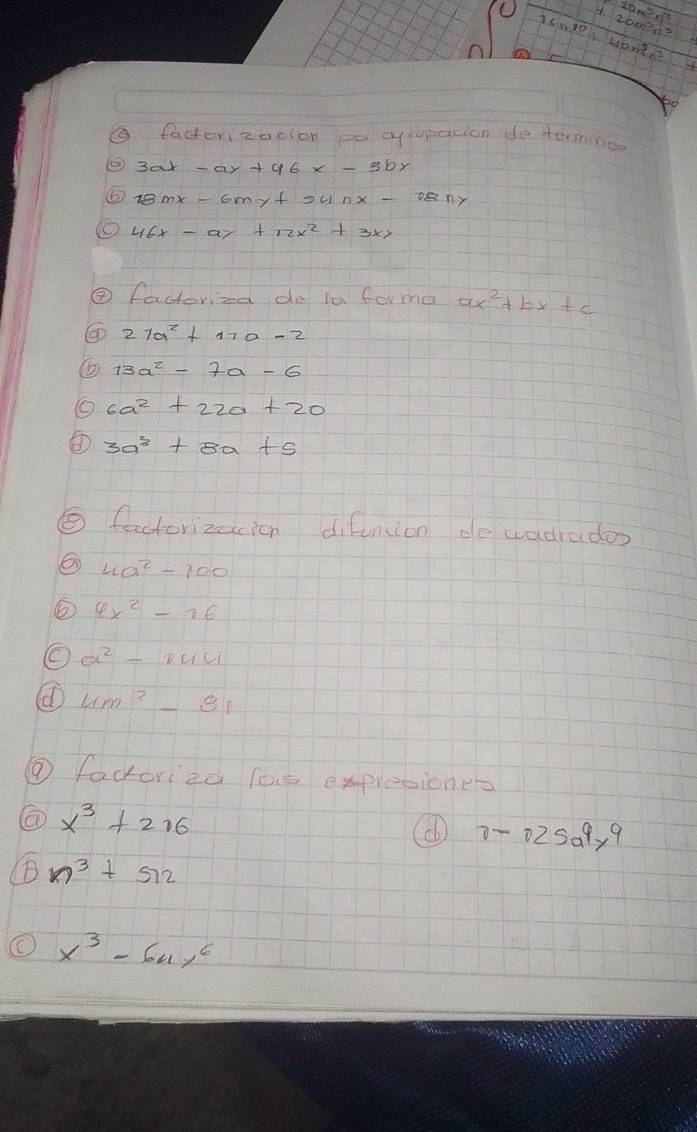 20m⁵n³
+ 20m²n³
16m¹⁰ 40m²n³
@ factorización pa agrupacion de termino
ⓐ 3ax - ay + 96x - 3by
ⓑ 18mx - 6my + 54nx - 18ny
ⓒ 46x - ay + 12x² + 3xy
⑦ factoriza de la forma ax² + bx + c
ⓐ 21a² + 11a - 2
ⓑ 13a² - 7a - 6
ⓒ 6a² + 22a + 20
ⓓ 3a³ + 8a + 5
⑧ factorizacion difencion de cuadrados
ⓐ 4a² - 100
ⓑ 9x² - 16
ⓒ a² - 144
ⓓ 4m² - 81
⑨ factoriza las expresiones
ⓐ x³ + 216
ⓓ 1 - 125a⁹y⁹
ⓑ n³ + 512
ⓒ x³ - 64y⁶